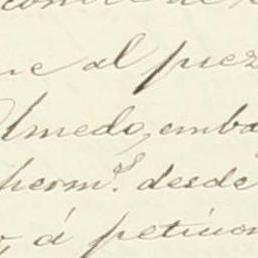 ue al juez
Olmedo, emba
herm.s desde
, á peticion